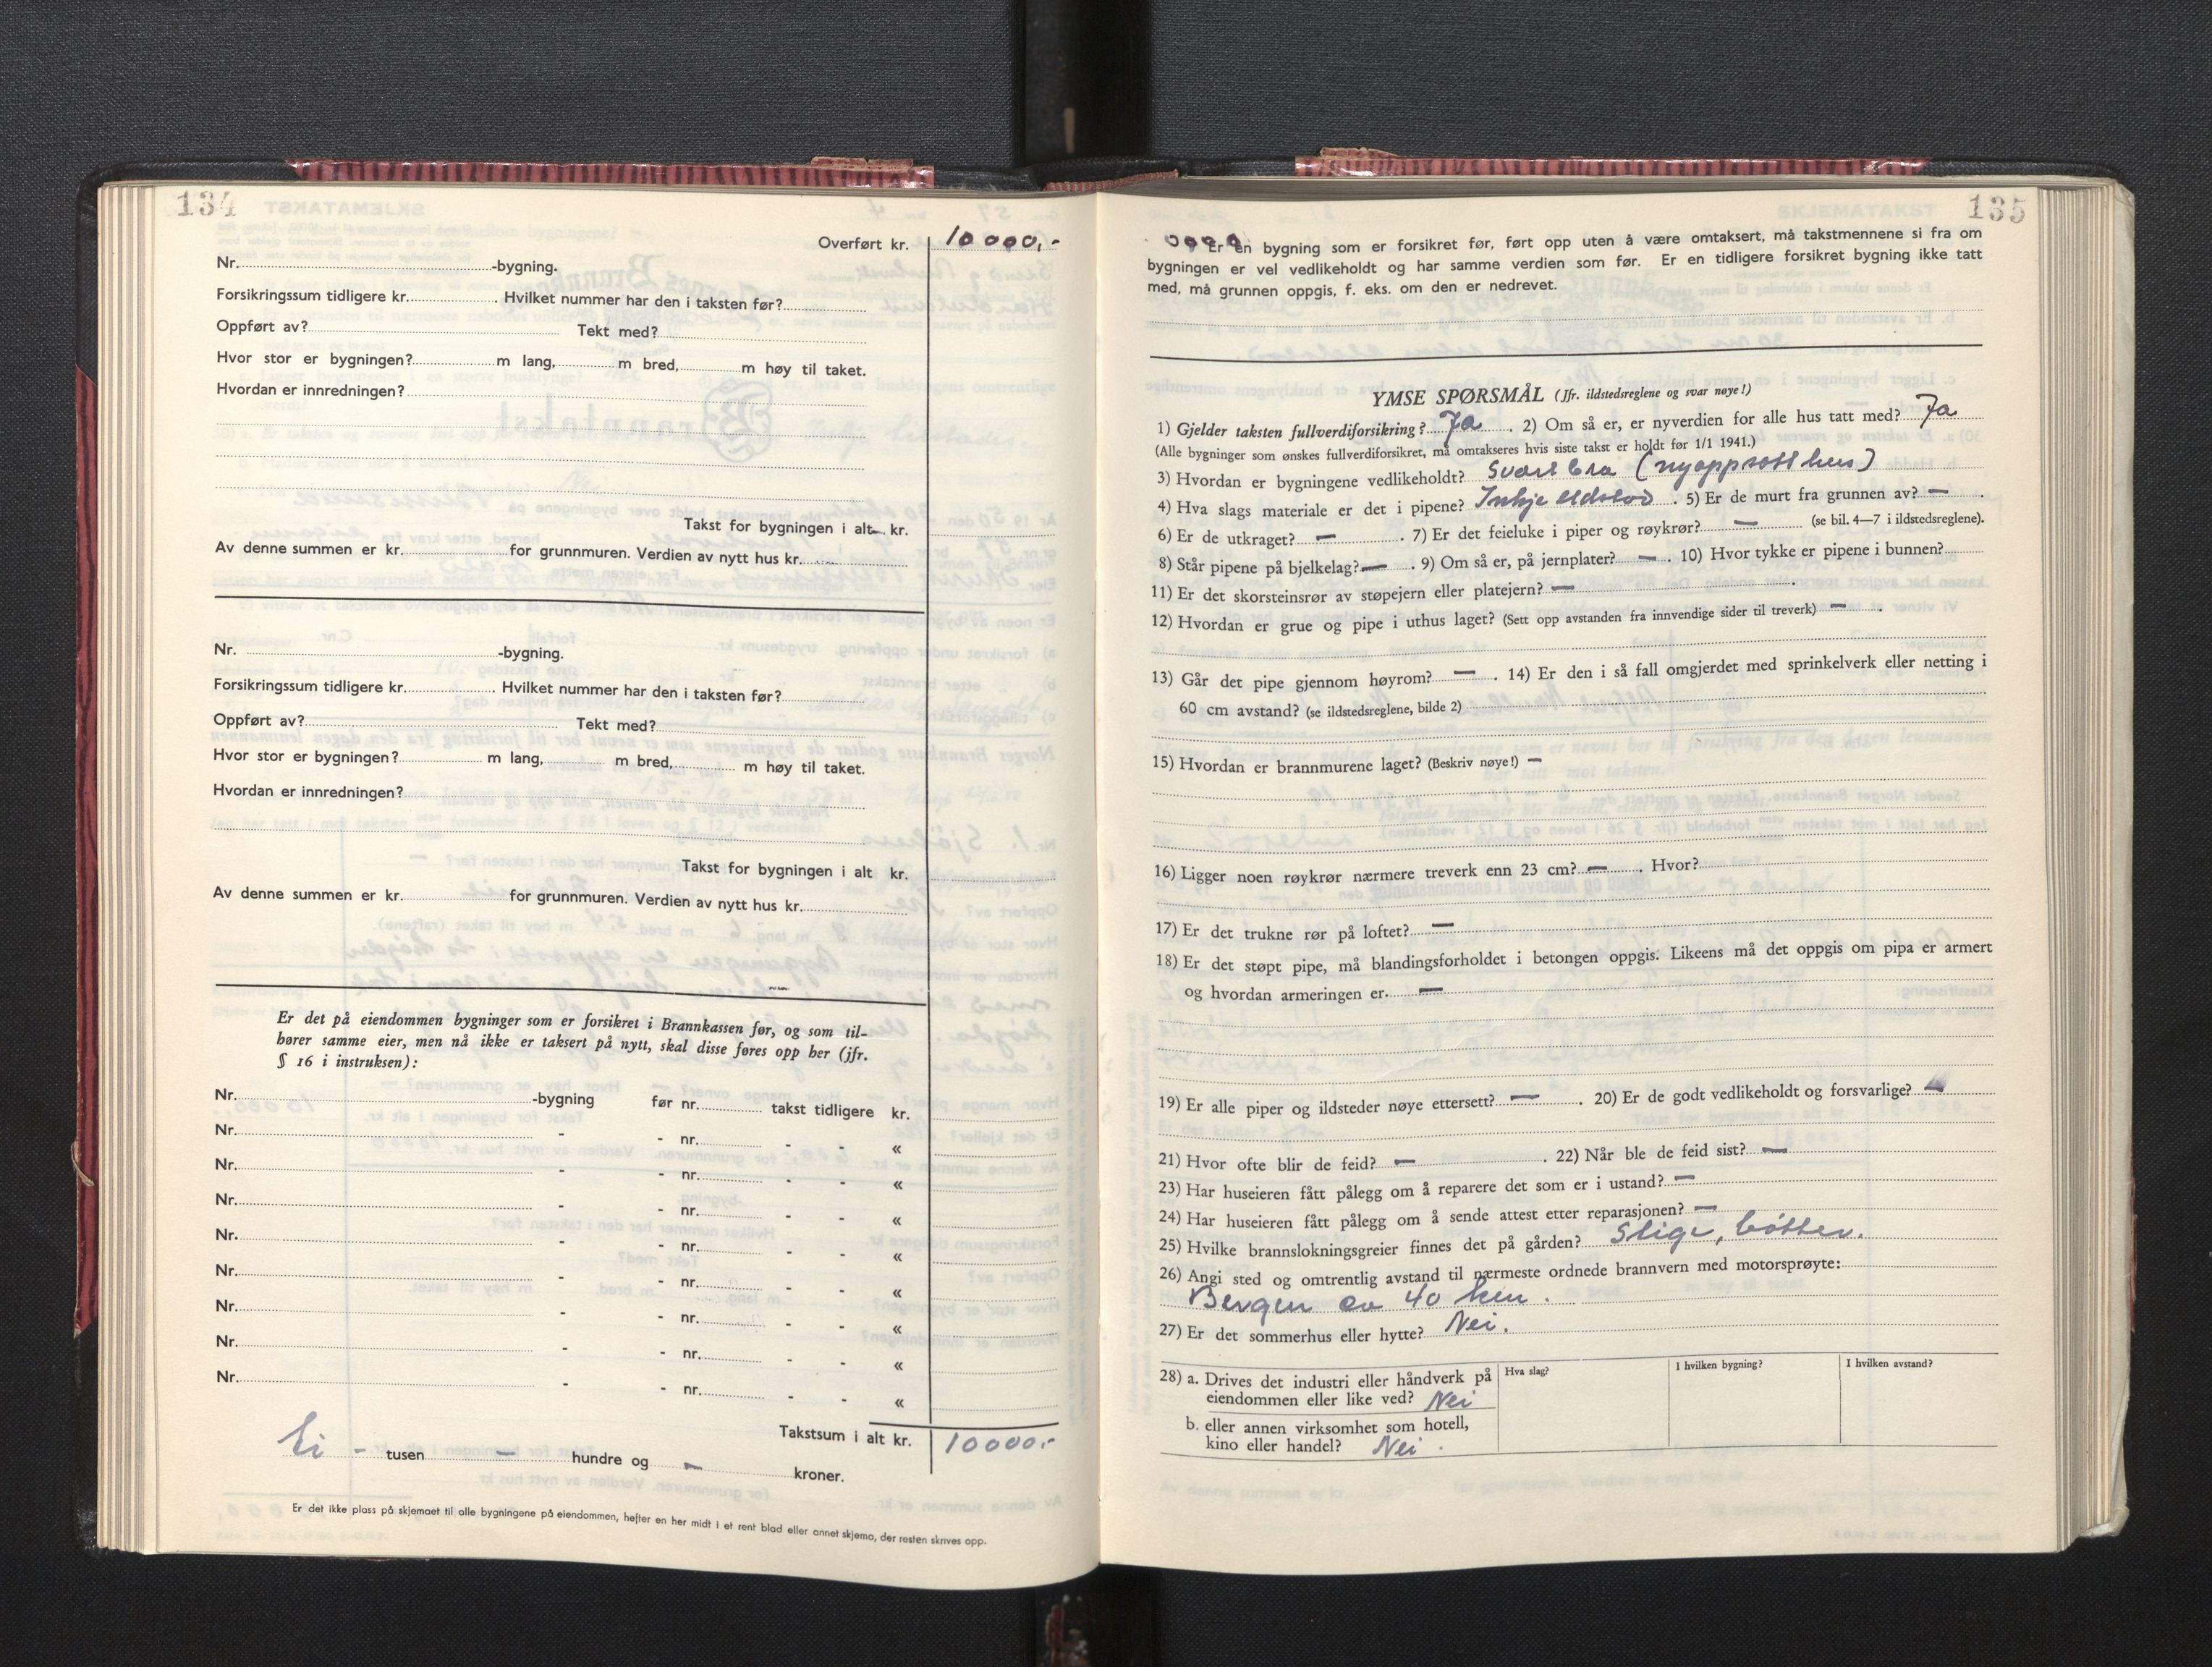 134
Overført kr. 10000,-
Nr. -bygning.
Forsikringssum tidligere kr. . Hvilket nummer har den i taksten før?
Oppført av? Tekt med?
Hvor stor er bygningen? m lang, m bred, m høy til taket.
Hvordan er innredningen?
Takst for bygningen i alt kr.
Av denne summen er kr. for grunnmuren. Verdien av nytt hus kr.
Nr. -bygning.
Forsikringssum tidligere kr. . Hvilket nummer har den i taksten før?
Oppført av? Tekt med?
Hvor stor er bygningen? m lang, m bred, m høy til taket.
Hvordan er innredningen?
Takst for bygningen i alt kr.
Av denne summen er kr. for grunnmuren. Verdien av nytt hus kr.
Er det på eiendommen bygninger som er forsikret i Brannkassen før, og som til-
hører samme eier, men nå ikke er taksert på nytt, skal disse føres opp her (jfr.
§ 16 i instruksen):
Nr. -bygning før nr. takst tidligere kr.
Nr. - - nr. - - «
Nr. - - nr. - - «
Nr. - - nr. - - «
Nr. - - nr. - - «
Nr. - - nr. - - «
Nr. - - nr. - - «
Nr. - - nr. - - «
Nr. - - nr. - - «
Takstsum i alt kr. 10000,-
Ti - tusen — hundre og — kroner.
Er det ikke plass på skjemaet til alle bygningene på eiendommen, hefter en her midt i et rent blad eller annet skjema, der resten skrives opp.
135
Er en bygning som er forsikret før, ført opp uten å være omtaksert, må takstmennene si fra om
bygningen er vel vedlikeholdt og har samme verdien som før. Er en tidligere forsikret bygning ikke tatt
med, må grunnen oppgis, f. eks. om den er nedrevet.
YMSE SPØRSMÅL (Jfr. ildstedsreglene og svar nøye!)
1) Gjelder taksten fullverdiforsikring? Ja . 2) Om så er, er nyverdien for alle hus tatt med? Ja
(Alle bygninger som ønskes fullverdiforsikret, må omtakseres hvis siste takst er holdt før 1/1 1941.)
3) Hvordan er bygningene vedlikeholdt? Svært bra (nyoppsett hus)
4) Hva slags materiale er det i pipene? Inkje eldsted . 5) Er de murt fra grunnen av? — .
6) Er de utkraget? — . 7) Er det feieluke i piper og røykrør? — (se bil. 4—7 i ildstedsreglene).
8) Står pipene på bjelkelag? — . 9) Om så er, på jernplater? — . 10) Hvor tykke er pipene i bunnen?
11) Er det skorsteinsrør av støpejern eller platejern? — .
12) Hvordan er grue og pipe i uthus laget? (Sett opp avstanden fra innvendige sider til treverk) — .
13) Går det pipe gjennom høyrom? — . 14) Er den i så fall omgjerdet med sprinkelverk eller netting i
60 cm avstand? (se ildstedsreglene, bilde 2)
15) Hvordan er brannmurene laget? (Beskriv nøye!) —
16) Ligger noen røykrør nærmere treverk enn 23 cm? — . Hvor?
17) Er det trukne rør på loftet? —
18) Er det støpt pipe, må blandingsforholdet i betongen oppgis. Likeens må det oppgis om pipa er armert
og hvordan armeringen er. —
19) Er alle piper og ildsteder nøye ettersett? — . 20) Er de godt vedlikeholdt og forsvarlige? —
21) Hvor ofte blir de feid? — . 22) Når ble de feid sist? —
23) Har huseieren fått pålegg om å reparere det som er i ustand? —
24) Har huseieren fått pålegg om å sende attest etter reparasjonen? —
25) Hvilke brannslokningsgreier finnes det på gården? Stige, bøtter.
26) Angi sted og omtrentlig avstand til nærmeste ordnede brannvern med motorsprøyte:
Bergen ca 40 km.
27) Er det sommerhus eller hytte? Nei.
28) a. Drives det industri eller håndverk på Hva slag? I hvilken bygning? I hvilken avstand?
eiendommen eller like ved? Nei
b. eller annen virksomhet som hotell,
kino eller handel? Nei.